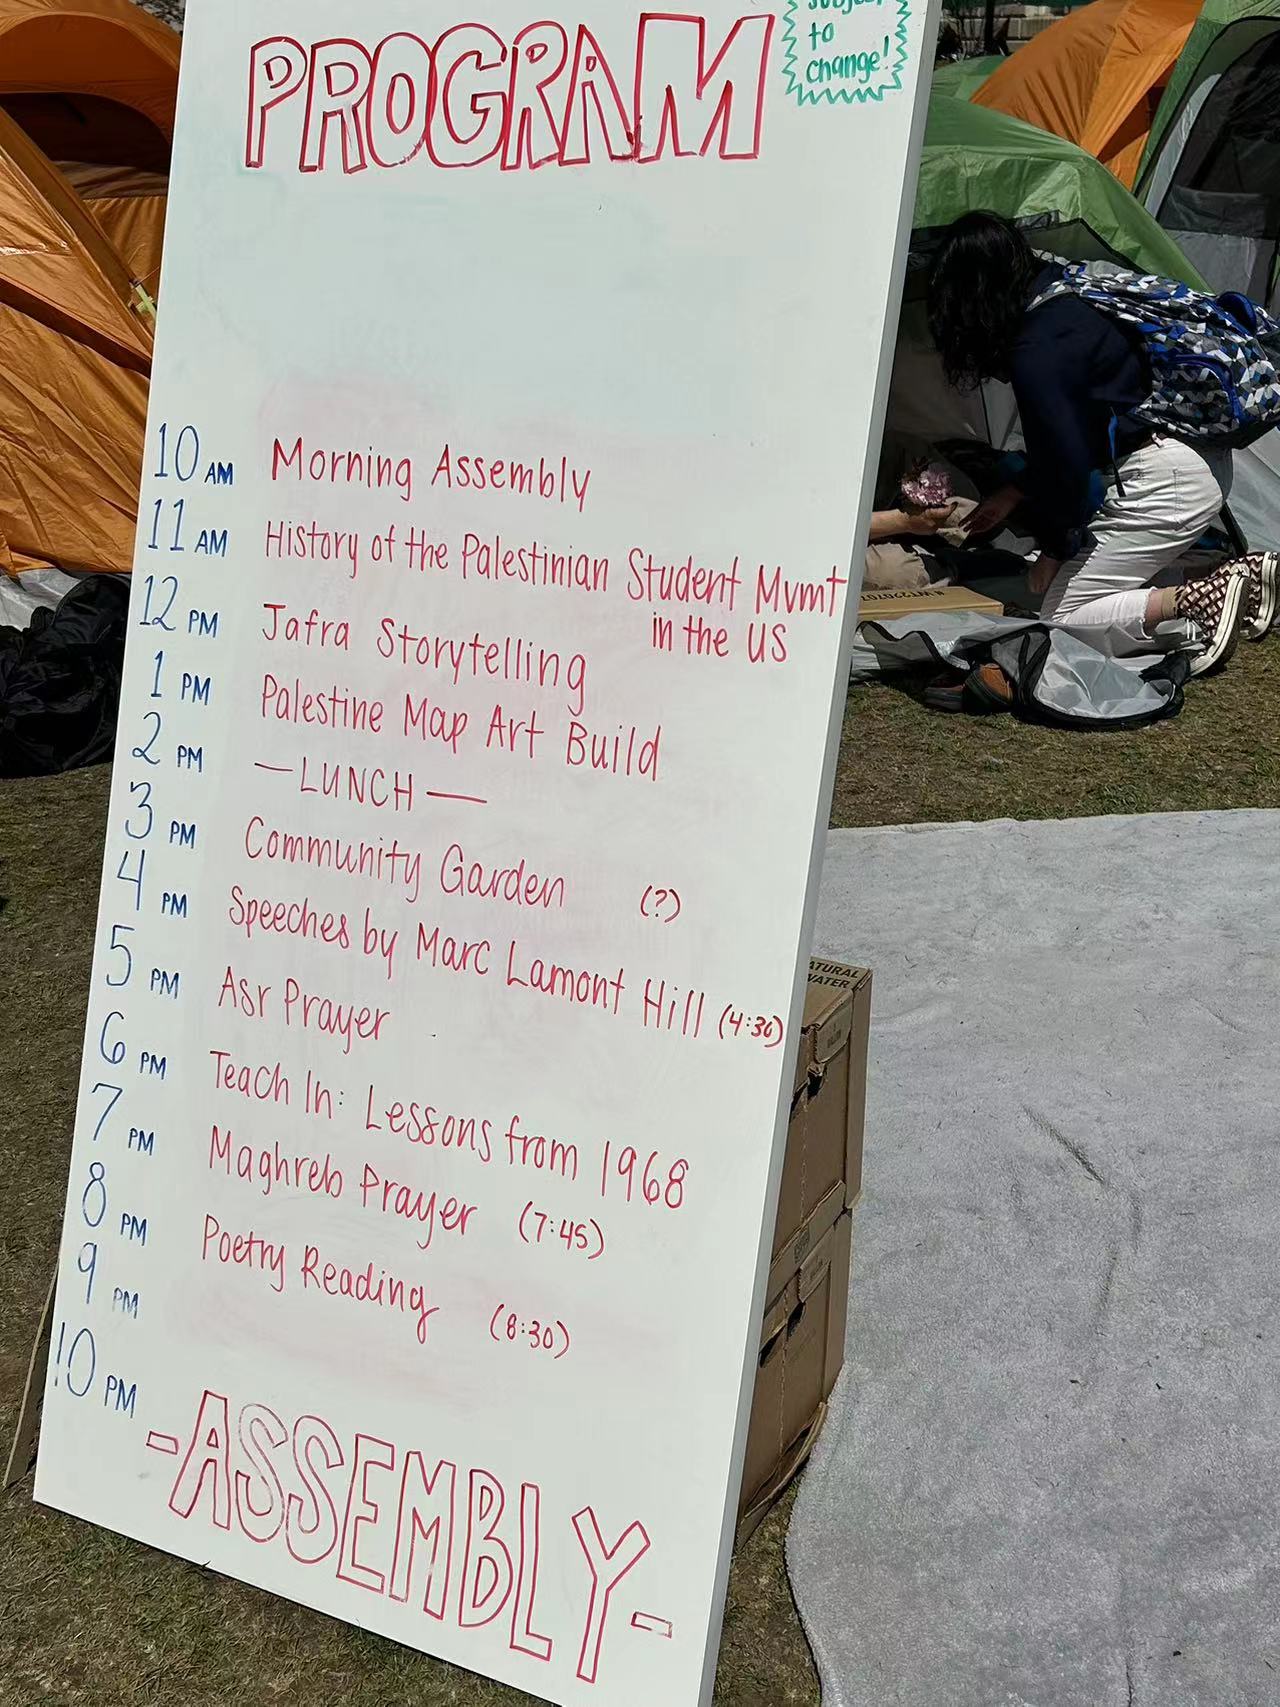 PROGRAM
subject
to
change!
10 AM Morning Assembly
11 AM History of the Palestinian Student Mvmt
in the US
12 PM Jafra Storytelling
1 PM Palestine Map Art Build
2 PM —LUNCH—
3 PM Community Garden (?)
4 PM Speeches by Marc Lamont Hill (4:30)
5 PM Asr Prayer
6 PM Teach In: Lessons from 1968
7 PM Maghreb Prayer (7:45)
8 PM Poetry Reading (8:30)
9 PM
10 PM
-ASSEMBLY-
NATURAL
WATER